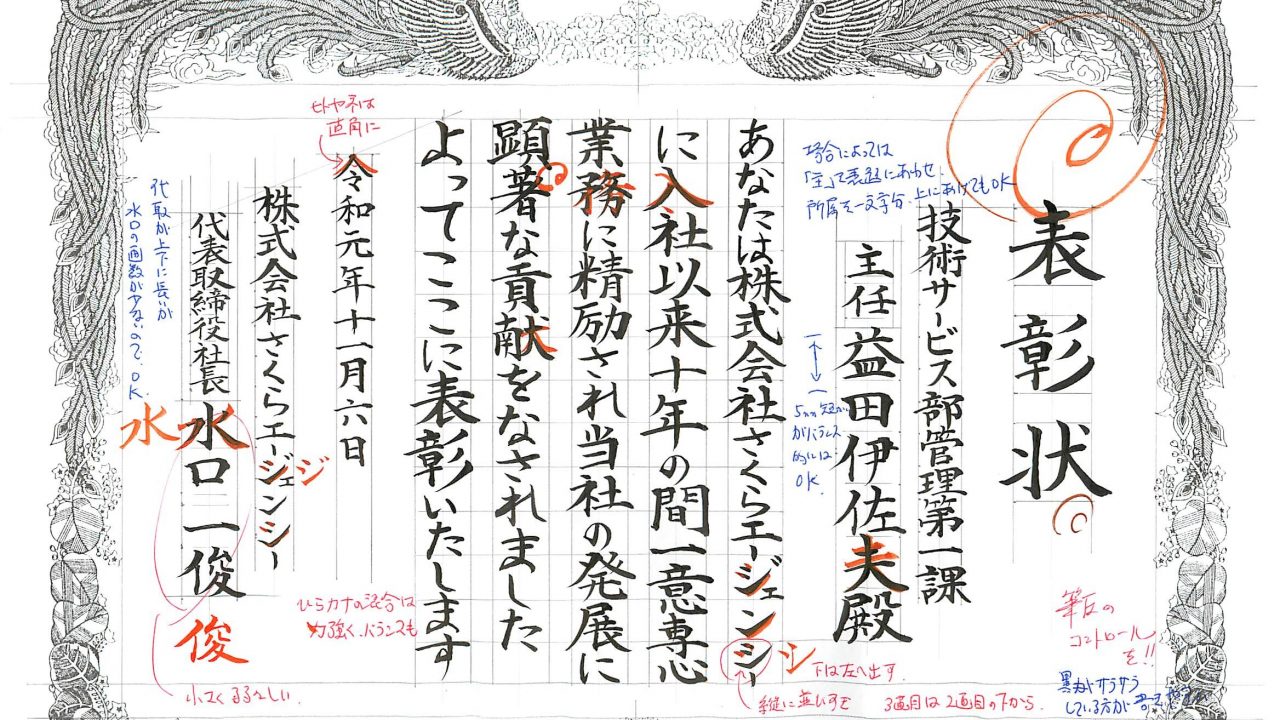 表彰状
技術サービス部管理第一課
主任 益田伊佐夫殿
あなたは株式会社さくらエージェンシー
に入社以来十年の間一意専心
業務に精励され当社の発展に
顕著な貢献をなされました
よってここに表彰いたします
令和元年十一月六日
株式会社さくらエージェンシー
代表取締役社長 水口一俊
場合によっては
「主」で表題にあわせ、
所属を一文字分、上にあげてもOK
5mm短か
がバランス
的には
OK.
ヒトヤネは
直角に
代取が上下に長いが
水口の画数が少ないので、OK.
水
俊
ジ
シ
小さく
ひらカナの混合は
力強く、バランスも
下は左へ出す.
縦に並びすぎ
3画目は2画目の下から.
筆圧の
コントロール
を!!
している方が